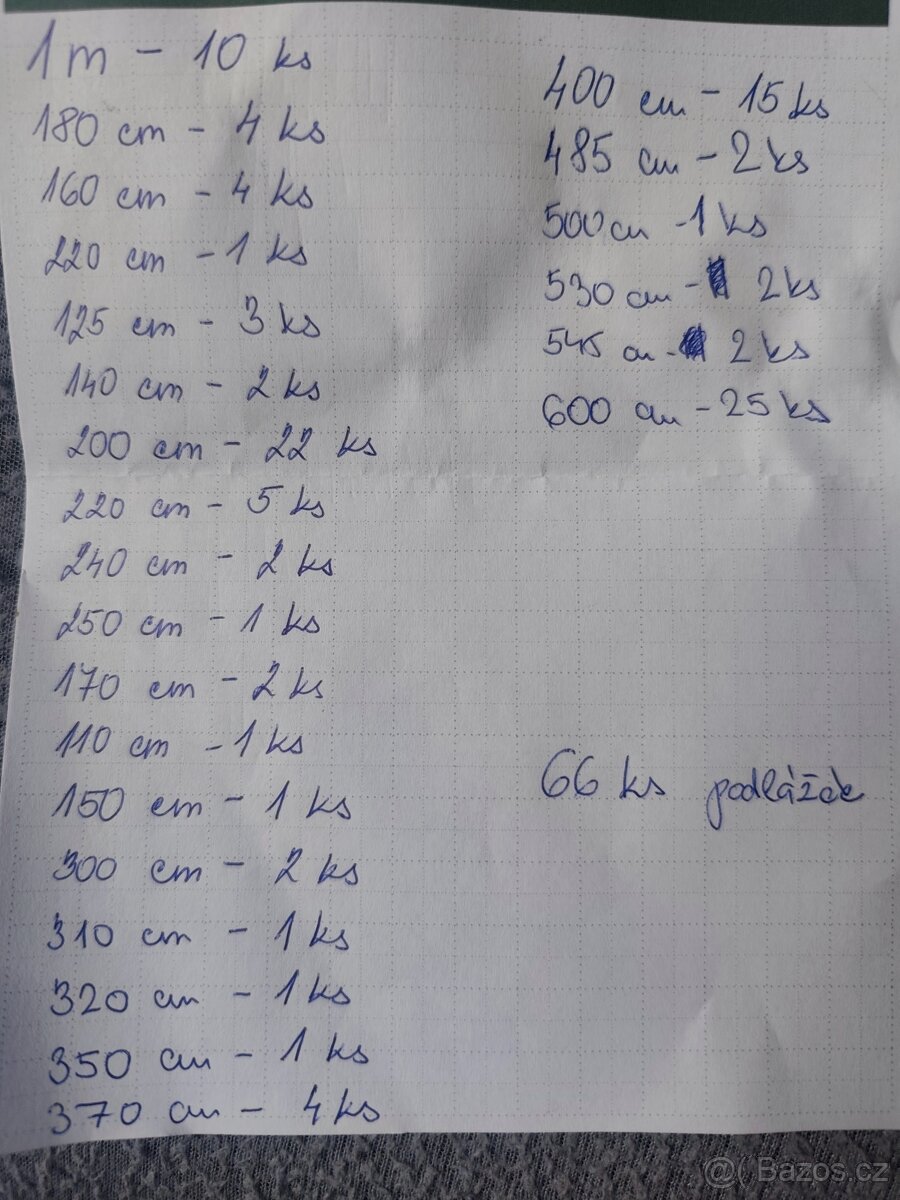 1m - 10 ks
180 cm - 4 ks
160 cm - 4 ks
220 cm - 1 ks
125 cm - 3 ks
140 cm - 2 ks
200 cm - 22 ks
220 cm - 5 ks
240 cm - 2 ks
250 cm - 1 ks
170 cm - 2 ks
110 cm - 1 ks
150 cm - 1 ks
300 cm - 2 ks
310 cm - 1 ks
320 cm - 1 ks
350 cm - 1 ks
370 cm - 4 ks
400 cm - 15 ks
485 cm - 2 ks
500 cm - 1 ks
530 cm - 2 ks
545 cm - 2 ks
600 cm - 25 ks
66 ks podlážek
@( Bazos.cz